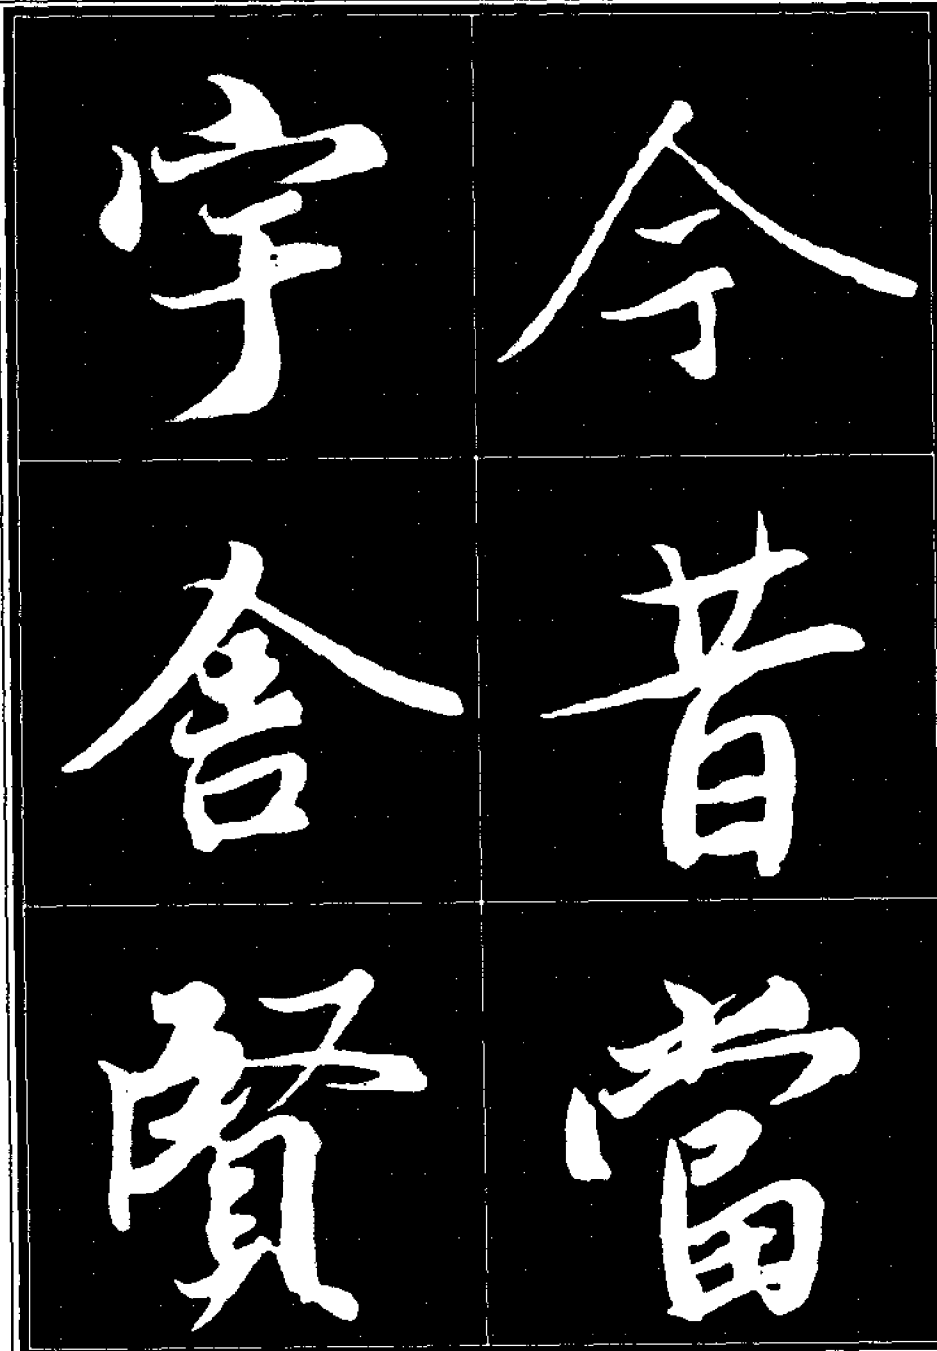 今昔當
宇舍賢